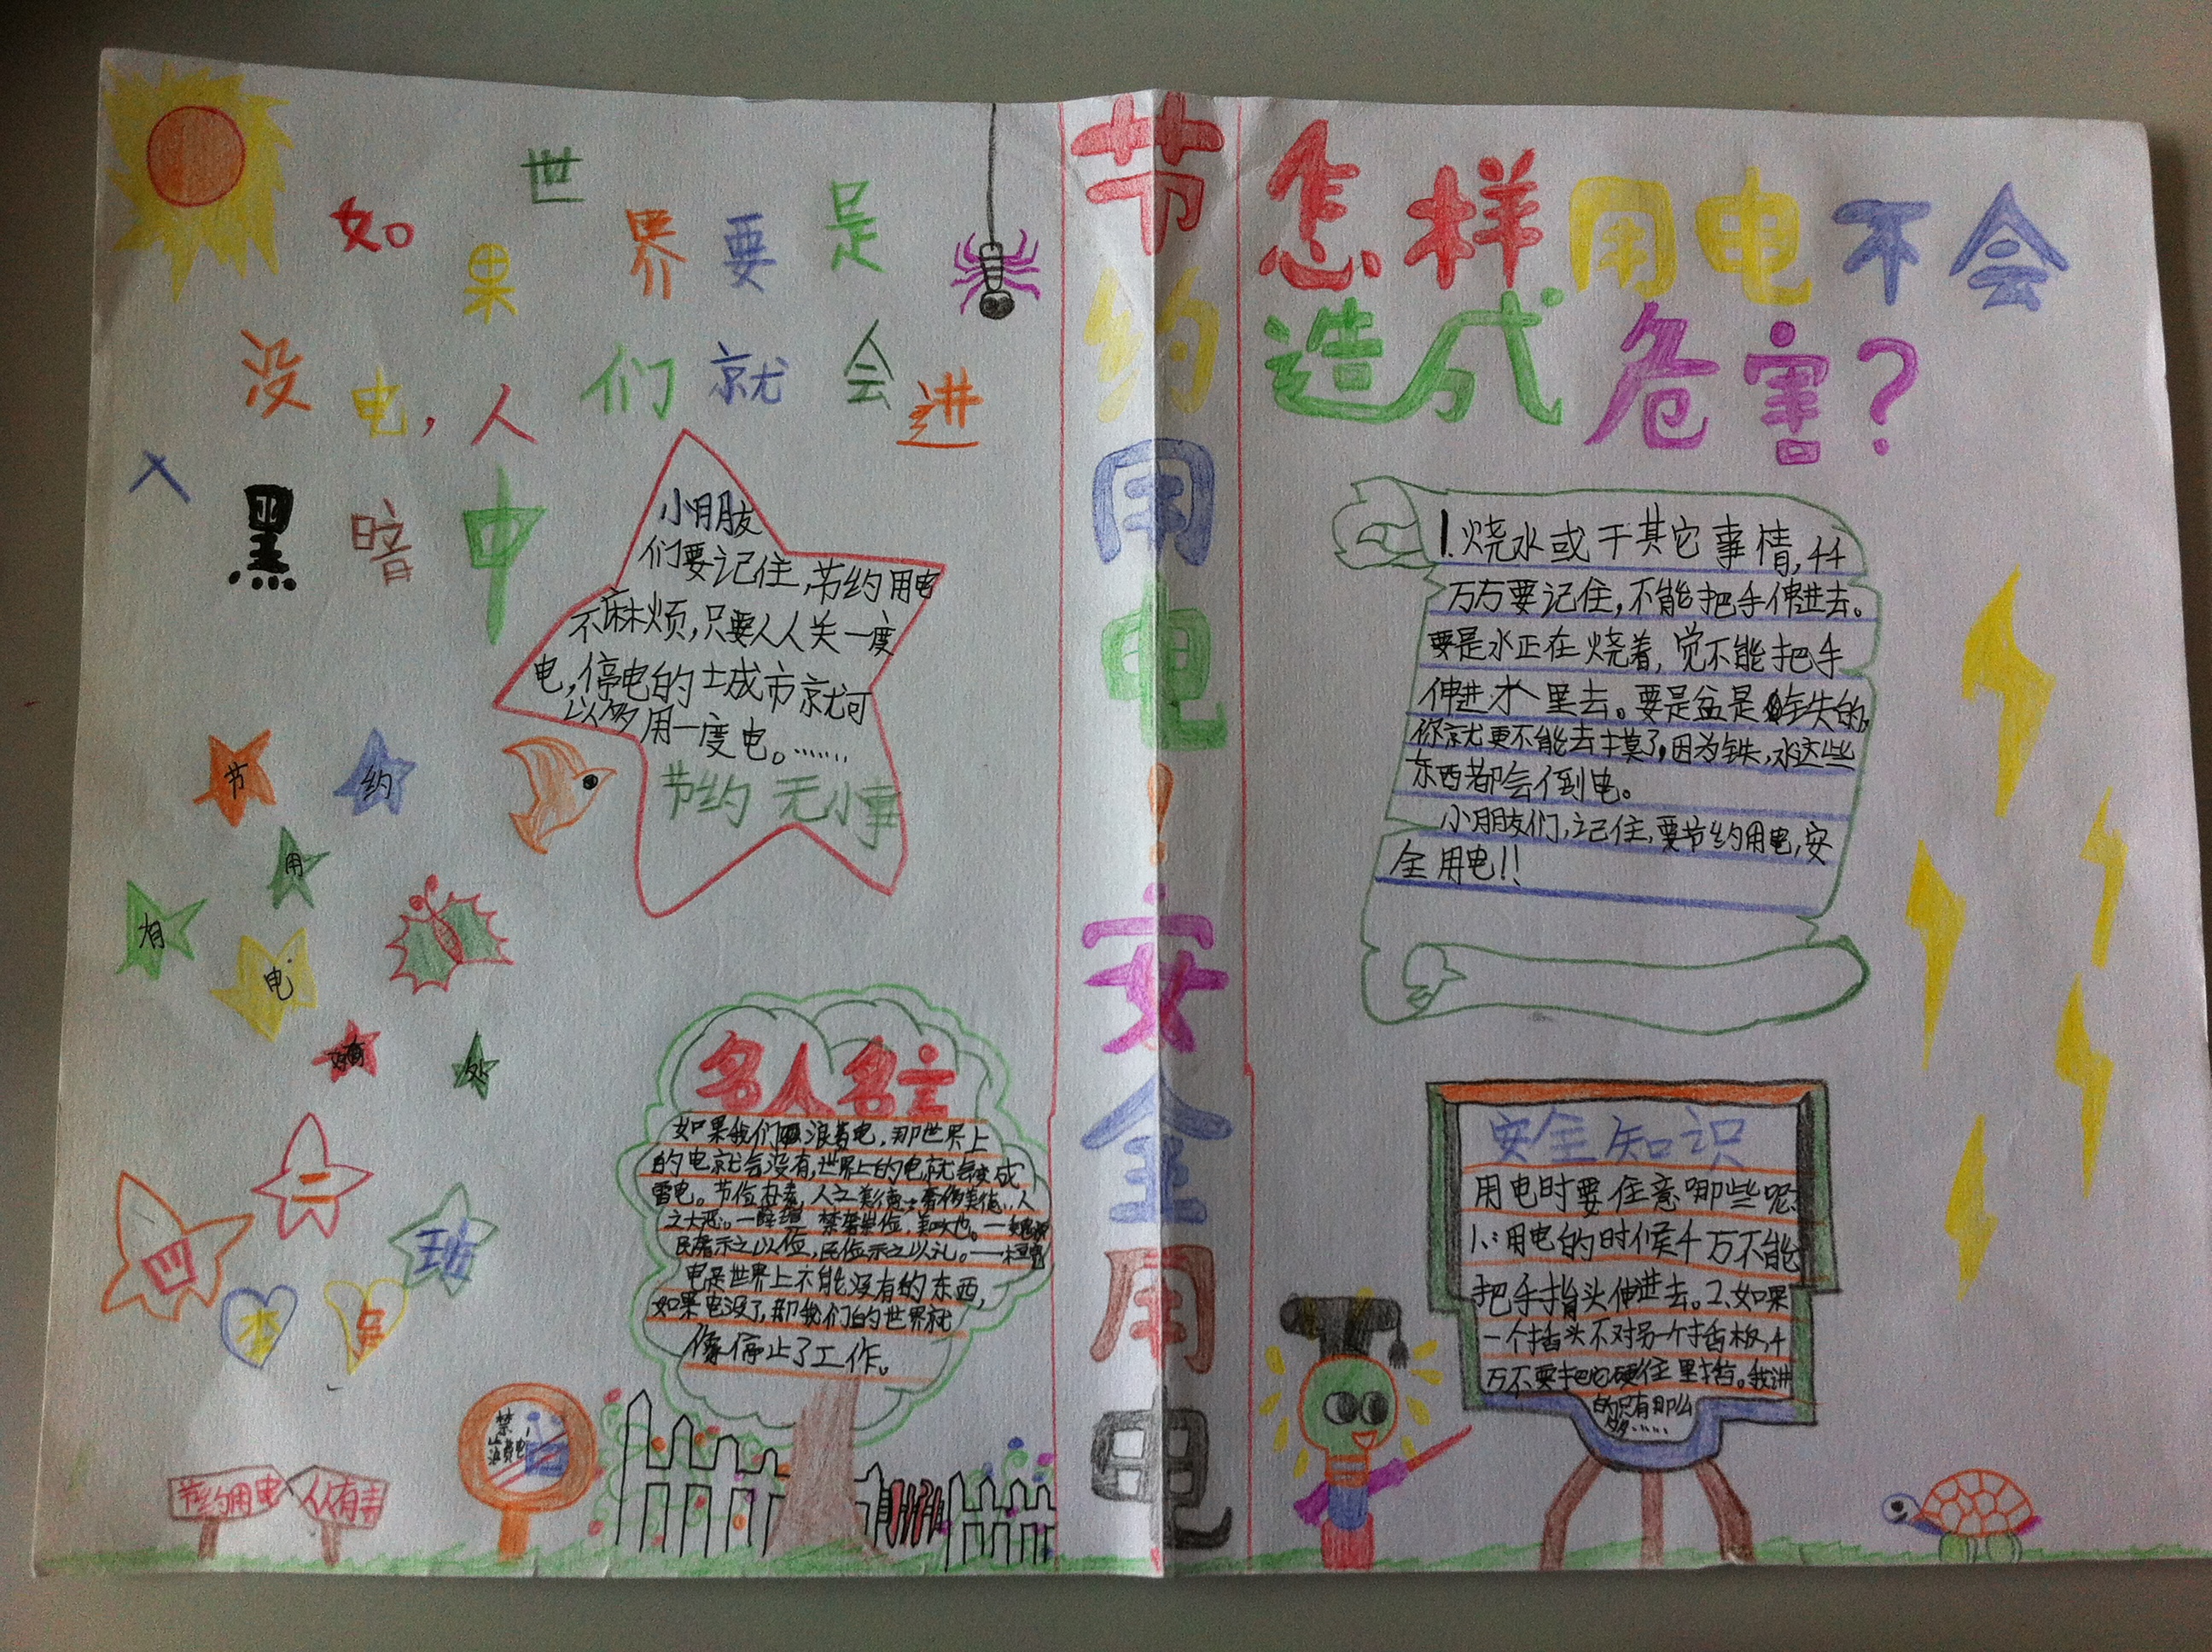 如果世界要是
没电,人们就会进
入黑暗中
小朋友
们要记住,节约用电
不麻烦,只要人人关一度
电,停电的城市就可
以多用一度电。……
节约 无小事
节约
用电
有
处
四二班
名人名言
如果我们浪着电,那世界上
的电就会没有,世界上的电就会变成
雷电。
电是世界上不能没有的东西,
如果电没了,那我们的世界就
像停止了工作。
禁止浪费电
节约用电 人人有责
节约用电!安全用电
怎样用电不会
造成危害?
1.烧水或干其它事情,千
万万要记住,不能把手伸进去。
要是水正在烧着,觉不能把手
伸进水里去。要是盆是铁的,
你就更不能去摸了,因为铁,水这些
东西都会倒电。
小朋友们,记住,要节约用电,安
全用电!!
安全知识
用电时要住意哪些呢
1.:用电的时候千万不能
把手指头伸进去。2.如果
一个插头不对另一个插板,千
万不要把它硬往里插。我讲
的只有那么
多……